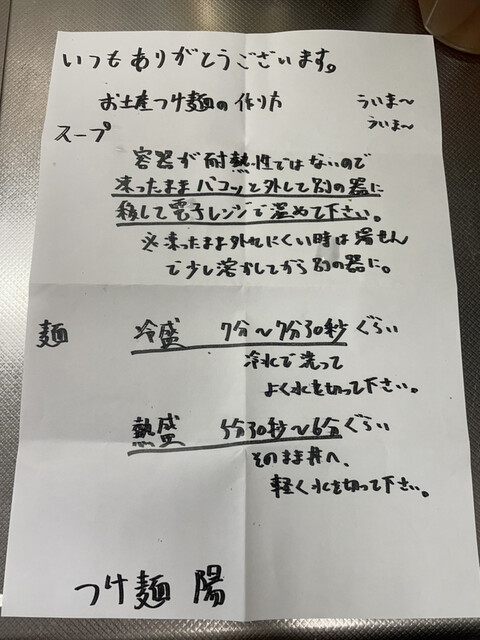 いつもありがとうございます。
お土産つけ麺の作り方 うぃま〜
うぃま〜
スープ
容器が耐熱性ではないので
凍ったままパコッと外して別の器に
移して電子レンジで温めて下さい。
※凍ったまま外れにくい時は湯せん
で少し溶かしてから別の器に。
麺 冷盛 7分〜7分30秒ぐらい
冷水で洗って
よく水を切って下さい。
熱盛 5分30秒〜6分ぐらい
そのまま丼へ、
軽く水を切って下さい。
つけ麺 陽